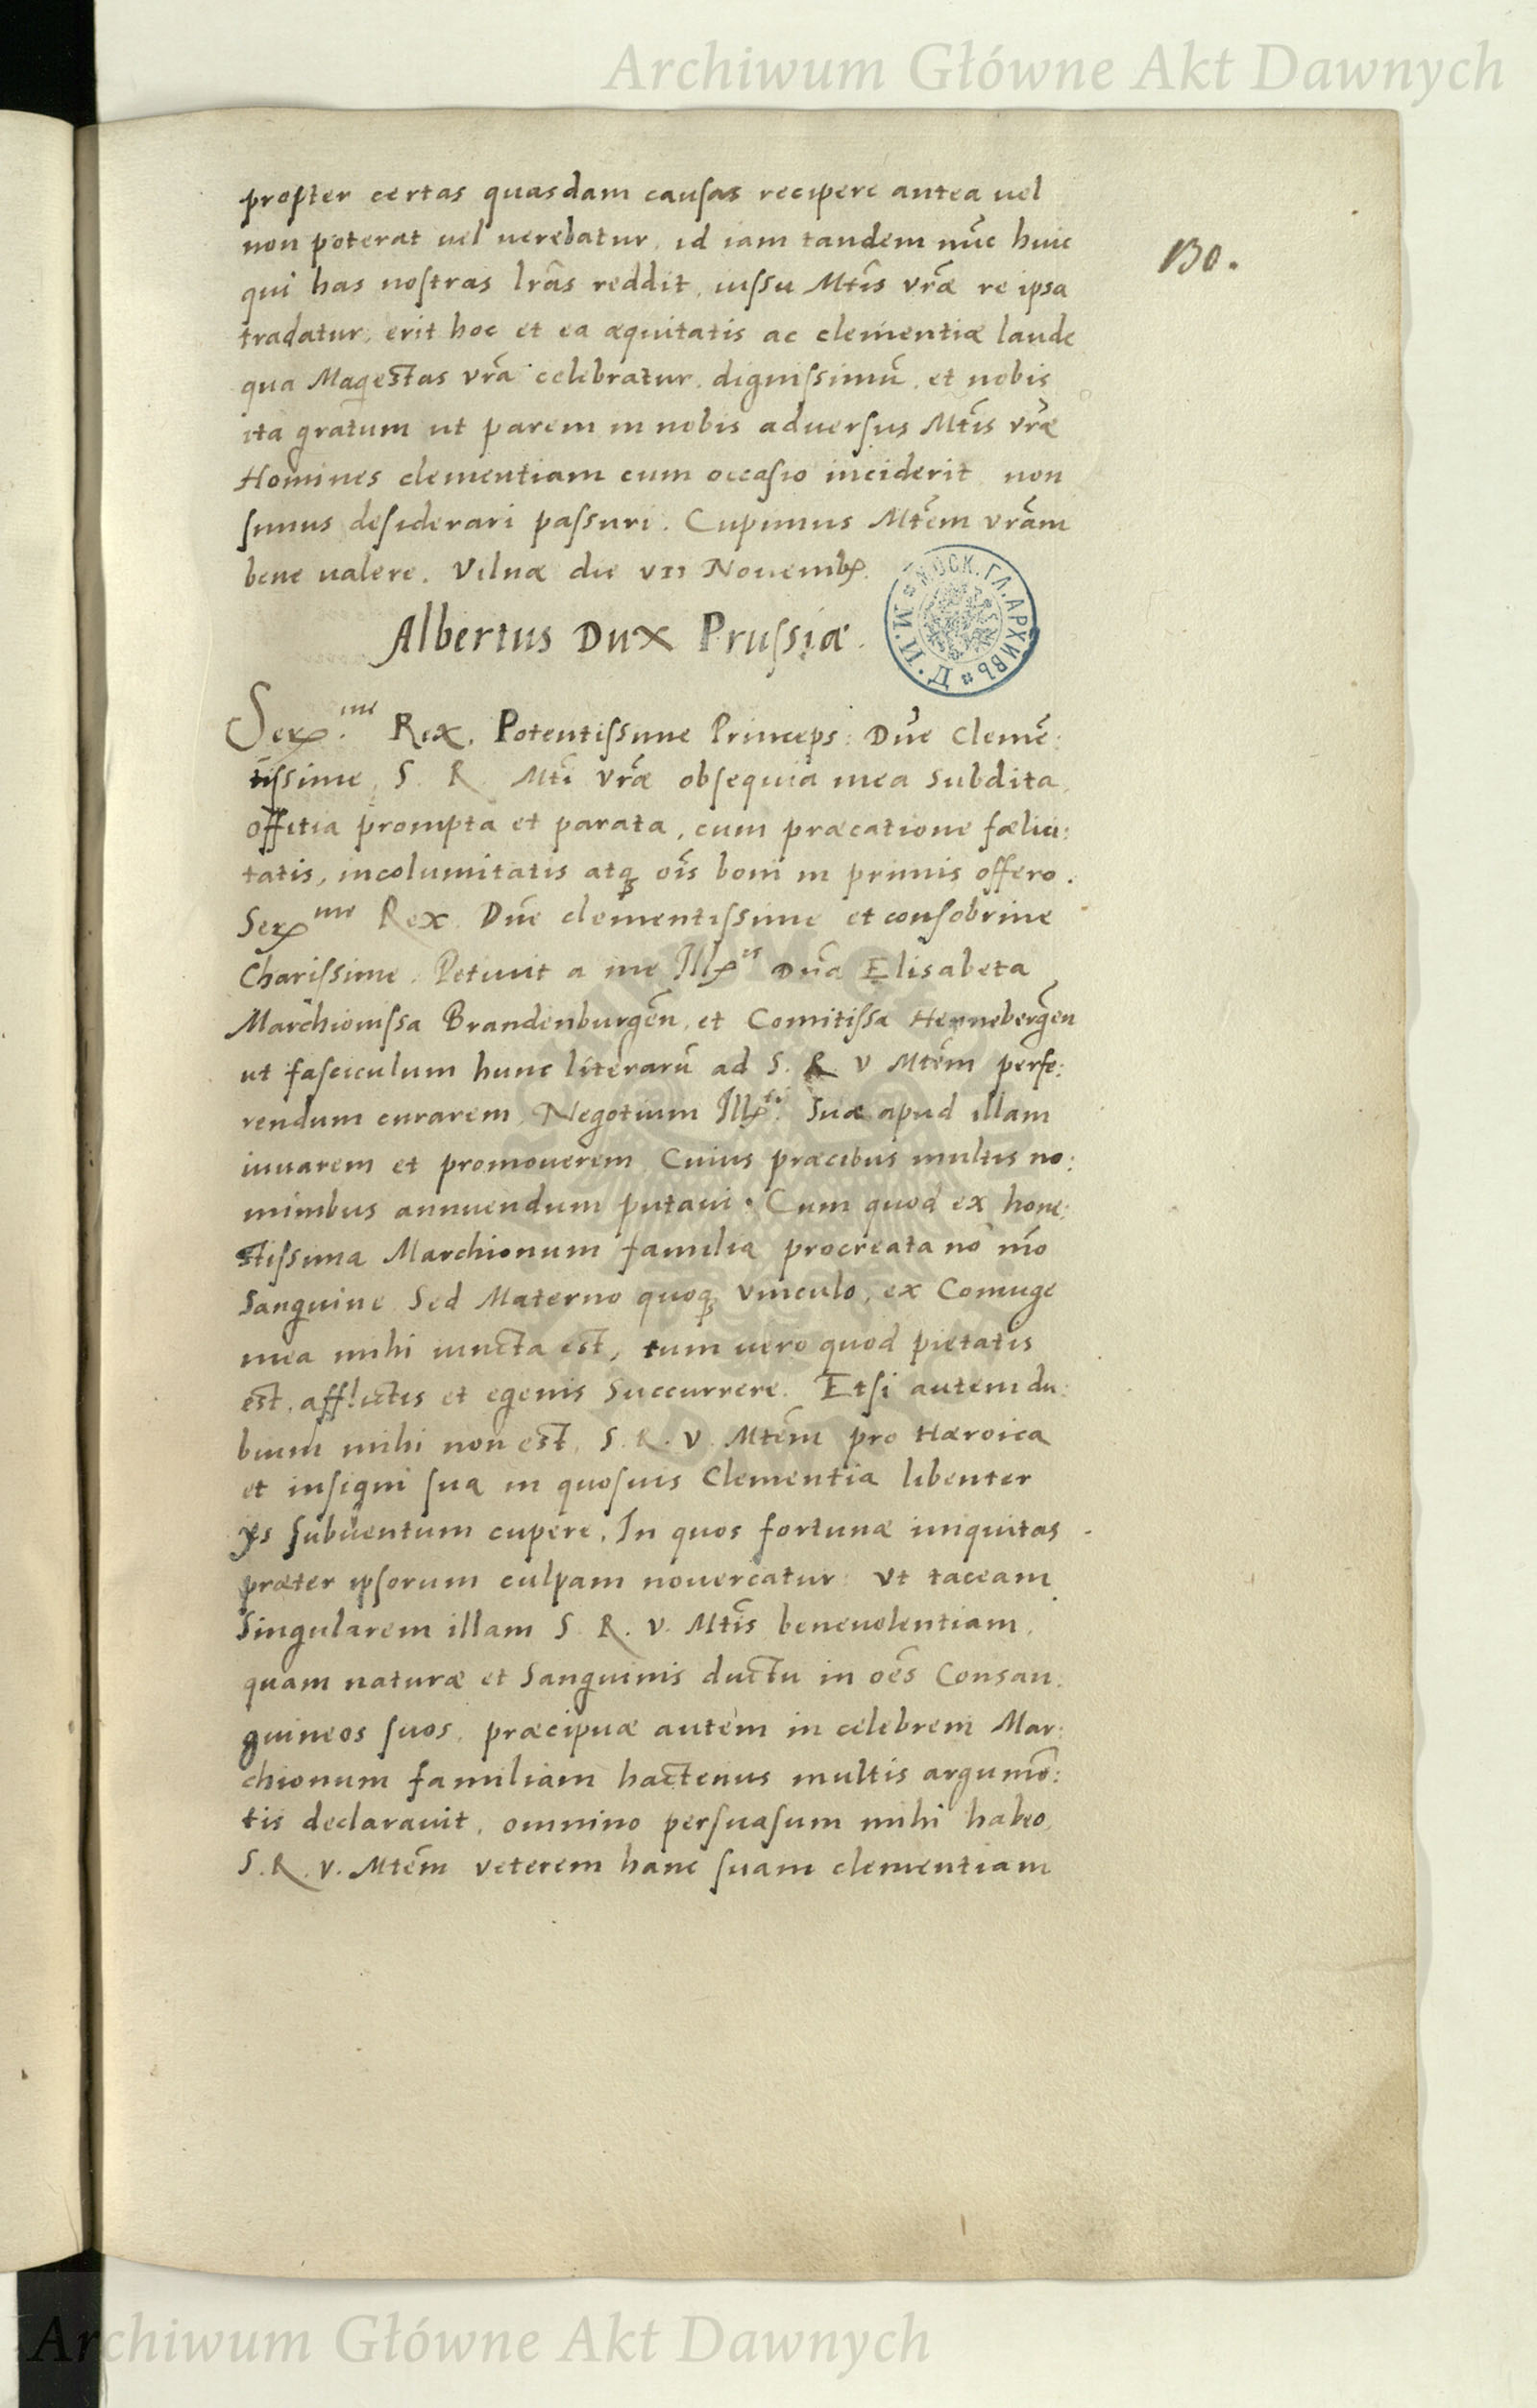 Archiwum Główne Akt Dawnych
propter certas quasdam causas recipere antea uel
non poterat uel uerebatur, id iam tandem nūc huic
qui has nostras lrās reddit, iussu Mtīs vrāe re ipsa
tradatur, erit hoc et ea æquitatis ac clementiæ laude
qua Maiestas vrā celebratur, dignissimū, et nobis
ita gratum ut parem in nobis aduersus Mtīs vrāe
Homines clementiam cum occasio inciderit non
sumus desiderari passuri. Cupimus Mtēm vrām
bene ualere. Vilnæ die VII Nouemb.
130.
Albertus Dux Prussiæ.
МОСК. ГЛ. АРХИВЪ М. И. Д.
Ser.me Rex, Potentissime Princeps: Dnē Clemē:
tissime, S. R. Mtī vrāe obsequia mea subdita,
offitia prompta et parata, cum præcatione fælici:
tatis, incolumitatis atq oīs boni in primis offero.
Ser me Rex Dnē clementissime et consobrine
Charissime. Petiuit a me Ill is Dnā Elisabeta
Marchionissa Brandenburgēn, et Comitissa Hennebergēn
ut fasciculum hunc literarū ad S. R V Mtēm perfe:
rendum curarem, Negotium Ill: suæ apud illam
iuuarem et promouerem. Cuius præcibus multis no:
minibus annuendum putaui. Cum quod ex hone:
stissima Marchionum familia procreata nō mō
Sanguine Sed Materno quoq vinculo, ex Coniuge
mea mihi iuncta est, tum uero quod pietatis
est, afflictis et egenis Succurrere. Etsi autem du:
bium mihi non est, S. R. V. Mtēm pro Hæroica
et insigni sua in quosuis Clementia libenter
ijs subuentum cupere, In quos fortunæ iniquitas
præter ipsorum culpam nouercatur: Vt taceam
Singularem illam S. R. V. Mtīs beneuolentiam,
quam naturæ et Sanguinis ductu in oēs Consan:
guineos suos, præcipuæ autem in celebrem Mar:
chionum familiam hactenus multis argumē:
tis declarauit, omnino persuasum mihi habeo,
S. R. V. Mtēm veterem hanc suam clementiam
Archiwum Główne Akt Dawnych